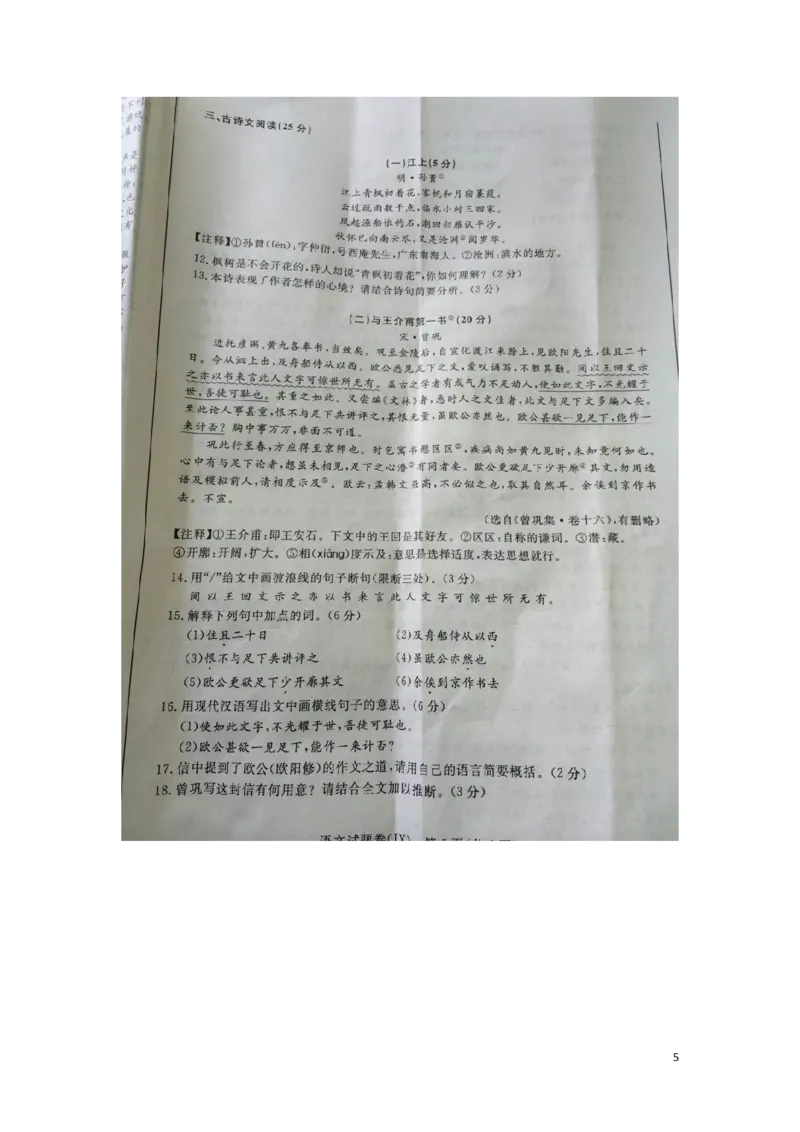 三、古诗文阅读(25分)
(一)江上(5分)
明·孙蕡①
江上青枫初着花,客帆和月宿蒹葭。
云过疏雨数千点,临水小村三四家。
风起渔船依钓石,潮回归雁认平沙。
秋怀已向南云尽,又是沧洲②阅岁华。
【注释】①孙蕡(fén):字仲衍,号西庵先生,广东南海人。②沧洲:滨水的地方。
12.枫树是不会开花的,诗人却说“青枫初着花”,你如何理解?(2分)
13.本诗表现了作者怎样的心境?请结合诗句简要分析。(3分)
(二)与王介甫第一书①(20分)
宋·曾巩
近托彦弼、黄九各奉书,当致矣。巩至金陵后,自宣化渡江来滁上,见欧阳先生,住且二十
日。今从泗上出,及舟船侍从以西。欧公悉见足下之文,爱叹诵写,不胜其勤。间以王回文示
之亦以书来言此人文字可惊世所无有。盖古之学者有或气力不足动人,使如此文字,不光耀于
世,吾徒可耻也。其重之如此。又尝编《文林》者,悉时人之文佳者,此文与足下文多编入矣。
至此论人事甚重,恨不与足下共讲评之,其恨无量,虽欧公亦然也。欧公甚欲一见足下,能作一
来计否?胸中事万万,非面不可道。
巩此行至春,方应得至京师也。时乞寓书慰区区②,疾病尚如黄九见时,未知竟何如也。
心中有与足下论者,想虽未相见,足下之心潜③有同者矣。欧公更欲足下少开廓④其文,勿用造
语及模拟前人,请相度示及⑤。欧云:孟韩文虽高,不必似之也,取其自然耳。余俟到京作书
去。不宣。
(选自《曾巩集·卷十六》,有删略)
【注释】①王介甫:即王安石。下文中的王回是其好友。②区区:自称的谦词。③潜:藏。
④开廓:开阔,扩大。⑤相(xiàng)度示及:意思是选择适度,表达思想就行。
14.用“/”给文中画波浪线的句子断句(限断三处)。(3分)
间以王回文示之亦以书来言此人文字可惊世所无有。
15.解释下列句中加点的词。(6分)
(1)住且二十日 (2)及舟船侍从以西
(3)恨不与足下共讲评之 (4)虽欧公亦然也
(5)欧公更欲足下少开廓其文 (6)余俟到京作书去
16.用现代汉语写出文中画横线句子的意思。(6分)
(1)使如此文字,不光耀于世,吾徒可耻也。
(2)欧公甚欲一见足下,能作一来计否?
17.信中提到了欧公(欧阳修)的作文之道,请用自己的语言简要概括。(2分)
18.曾巩写这封信有何用意?请结合全文加以推断。(3分)
语文试题卷(JX)
5